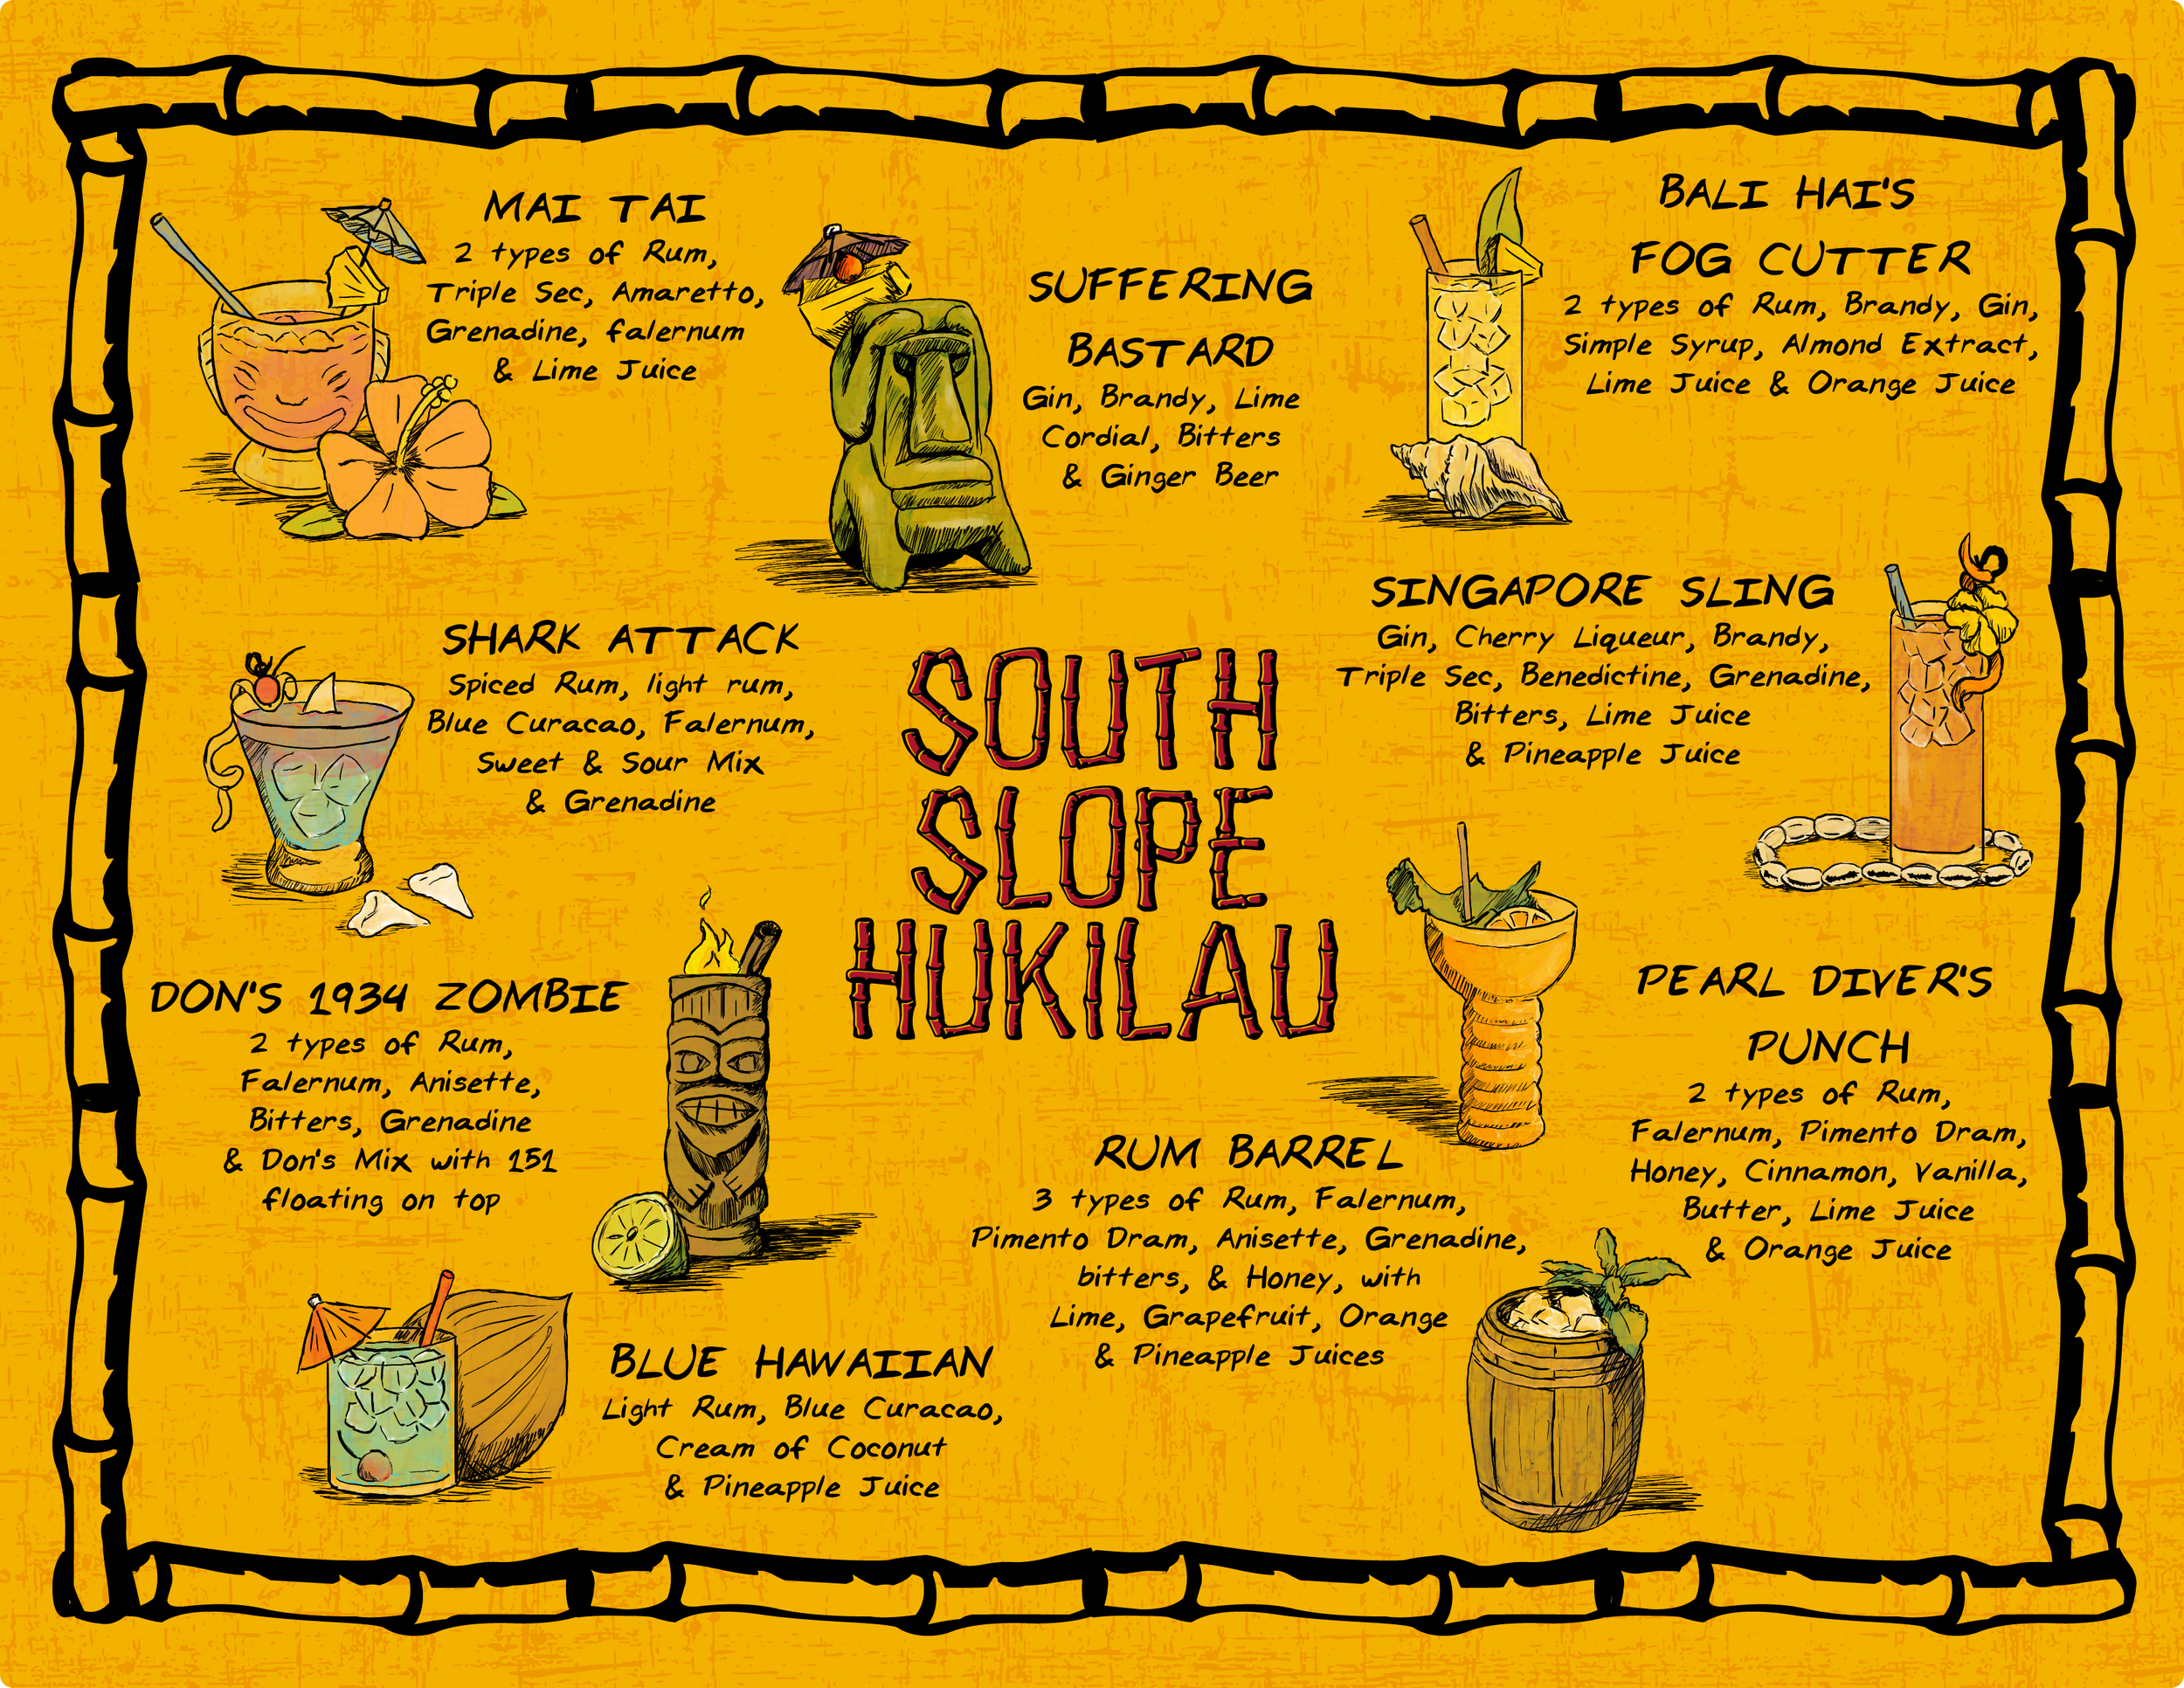 MAI TAI
2 types of Rum,
Triple Sec, Amaretto,
Grenadine, falernum
& Lime Juice
SUFFERING
BASTARD
Gin, Brandy, Lime
Cordial, Bitters
& Ginger Beer
BALI HAI'S
FOG CUTTER
2 types of Rum, Brandy, Gin,
Simple Syrup, Almond Extract,
Lime Juice & Orange Juice
SHARK ATTACK
Spiced Rum, light rum,
Blue Curacao, Falernum,
Sweet & Sour Mix
& Grenadine
SOUTH
SLOPE
HUKILAU
SINGAPORE SLING
Gin, Cherry Liqueur, Brandy,
Triple Sec, Benedictine, Grenadine,
Bitters, Lime Juice
& Pineapple Juice
DON'S 1934 ZOMBIE
2 types of Rum,
Falernum, Anisette,
Bitters, Grenadine
& Don's Mix with 151
floating on top
PEARL DIVER'S
PUNCH
2 types of Rum,
Falernum, Pimento Dram,
Honey, Cinnamon, Vanilla,
Butter, Lime Juice
& Orange Juice
RUM BARREL
3 types of Rum, Falernum,
Pimento Dram, Anisette, Grenadine,
bitters, & Honey, with
Lime, Grapefruit, Orange
& Pineapple Juices
BLUE HAWAIIAN
Light Rum, Blue Curacao,
Cream of Coconut
& Pineapple Juice